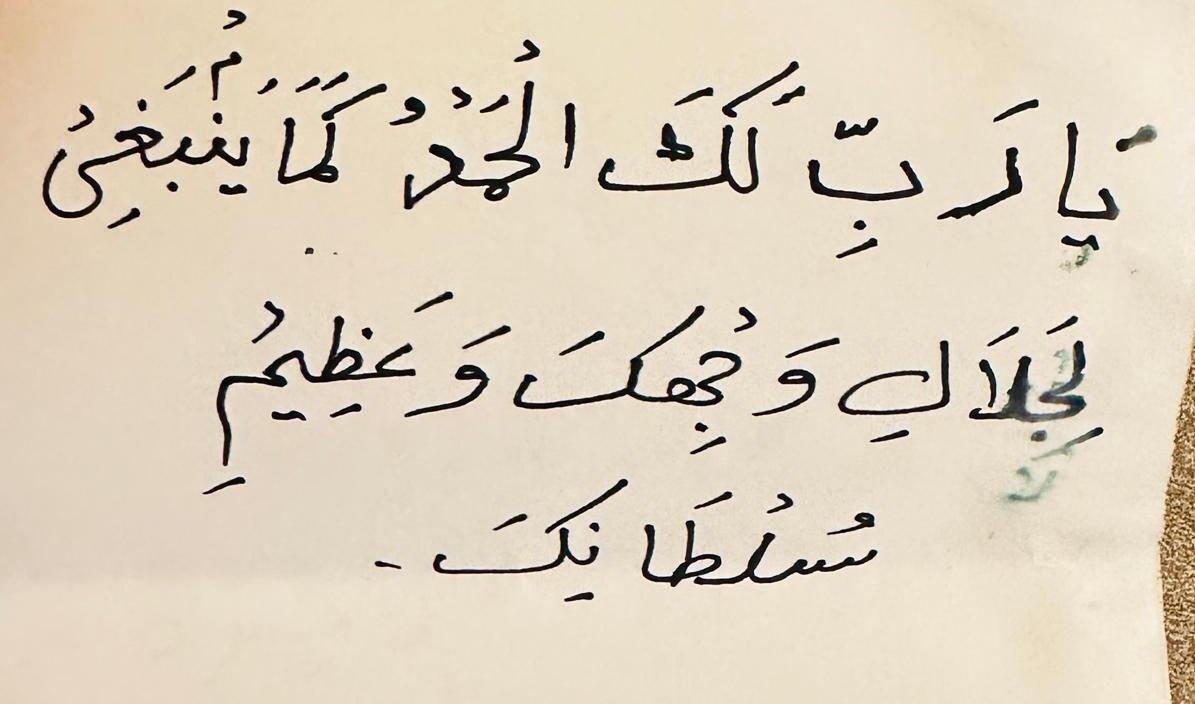 يَا رَبِّ لَكَ الْحَمْدُ كَمَا يَنْۢبَغِىْ
لِجَلَالِ وَجْهِكَ وَعَظِيْمِ
سُلْطَانِكَ-